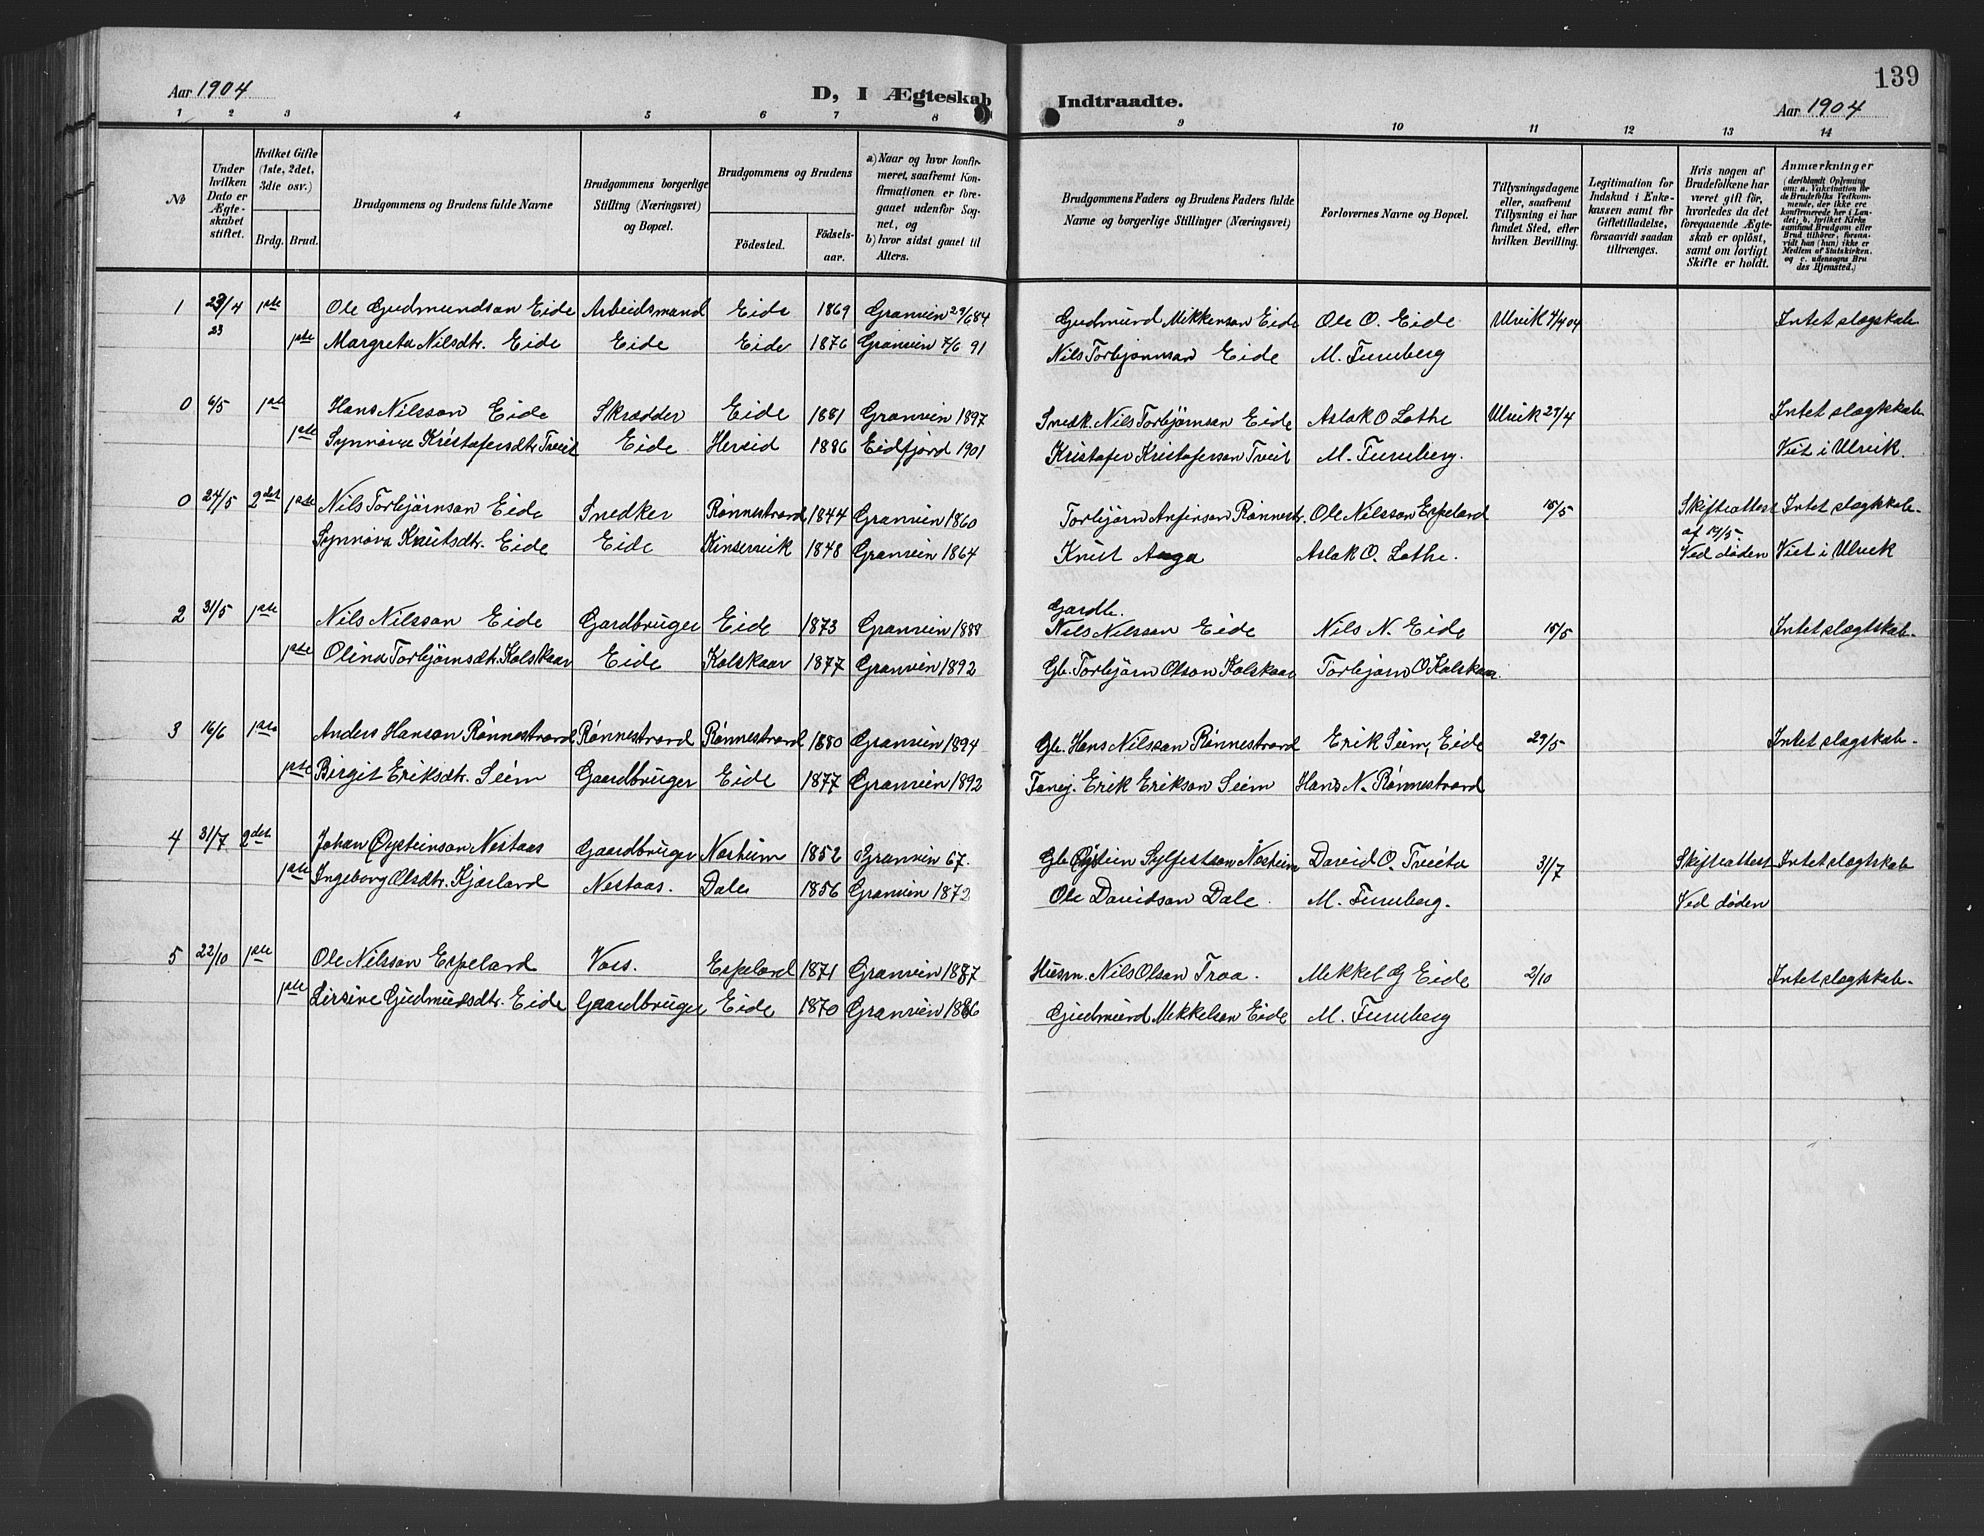 Aar 1904
D, I Ægteskab Indtraadte.
139
Aar 1904
1 2 3 4 5 6 7 8 9 10 11 12 13 14
No
Under hvilken Dato er Ægteskabet stiftet.
Hvilket Gifte (1ste, 2det, 3die osv.)
Brdg. Brud.
Brudgommens og Brudens fulde Navne
Brudgommens borgerlige Stilling (Næringsvei) og Bopæl.
Brudgommens og Brudens
Fødested. Fødselsaar.
a) Naar og hvor konfirmeret, saafremt Konfirmationen er foregaaet udenfor Sognet, og
b) hvor sidst gaaet til Alters.
Brudgommens Faders og Brudens Faders fulde Navne og borgerlige Stillinger (Næringsvei)
Forlovernes Navne og Bopæl.
Tillysningsdagene eller, saafremt Tillysning ei har fundet Sted, efter hvilken Bevilling.
Legitimation for Indskud i Enkekassen samt for Giftetilladelse, forsaavidt saadan tiltrænges.
Hvis nogen af Brudefolkene har været gift før, hvorledes da det foregaaende Ægteskab er opløst, samt om lovligt Skifte er holdt.
Anmærkninger
(deriblandt Oplysning om: a. Vakcination for de Brudefolks Vedkommende, der ikke ere konfirmerede her i Landet; b. hvilket Kirkesamfund Brudgom eller Brud tilhører, forsaavidt han (hun) ikke er Medlem af Statskirken. og c. udensogns Brudes Hjemsted.)
1 23/4 1ste Ole Gudmundson Eide Arbeidsmand Eide 1869 Granvin 29/6 84 Gudmund Mikkenson Eide Ole O. Eide Ulvik 4/4 04 Intet slægskab
23 1ste Margreta Nilsdtr. Eide Eide Eide 1876 Granvin 7/6 91 Nils Torbjørnson Eide M. Furuberg
0 6/5 1ste Hans Nilsson Eide Skrædder Eide 1881 Granvin 1897 Snedk. Nils Torbjørnson Eide Aslak O. Lothe Ulvik 29/4 Intet slægtskab
1ste Synnøve Kristafersdtr. Tveit Eide Hereid 1886 Eidfjord 1901 Kristafer Kristaferson Tveit M. Furuberg. Viet i Ulvik.
0 24/5 2det 1ste Nils Torbjørnson Eide Snedker Rønnestrand 1844 Granvin 1860 Torbjørn Anfinson Rønnestr. Ole Nilsson Espeland 15/5 Skifteattest Intet slægtskab
af 14/5.
Synnøva Knutsdtr. Eide Eide Kinservik 1848 Granvin 1864 Knut Aaga Aslak O. Lothe. Ved døden Viet i Ulvik
Gardb.
2 31/5 1ste Nils Nilsson Eide Gardbruger Eide 1873 Granvin 1888 Nils Nilsson Eide Nils N. Eide 15/5 Intet slægtskab.
1ste Olina Torbjørnsdtr. Kolskaar Eide Kolskaar 1877 Granvin 1892 Gb. Torbjørn Olson Kolskaar Torbjørn O Kolskaar.
3 16/6 1ste Anders Hanson Rønnestrand Rønnestrand Rønnestrand 1880 Granvin 1894 Gb. Hans Nilsson Rønnestrand Erik Seim, Eide 29/5 Intet slægskab.
1ste Birgit Eriksdtr. Seim Gaardbruger Eide 1877 Granvin 1892 Erik Erikson Seim Hans N. Rønnestrand
4 31/7 2det Johan Øysteinson Nestaas Gaardbruger Nesheim 1852 Granvin 67. Gb. Østein Sylfestson Nesheim David O. Tveito 31/7 Skifteattest Intet slægtskab
1ste Ingeborg Olsdtr. Kjærland Nestaas. Dale 1856 Granvin 1872 Ole Davidson Dale. M. Furuberg. Ved døden
5 22/10 1ste Ole Nilsson Espeland Voss. Espeland 1871 Granvin 1887 Husm. Nils Olson Troa. Mekkel G Eide 2/10 Intet slægtskab.
1ste Gudmundsdtr. Eide Gaardbruger Eide 1870 Granvin 1886 Gudmund Mekkelson Eide M. Furuberg